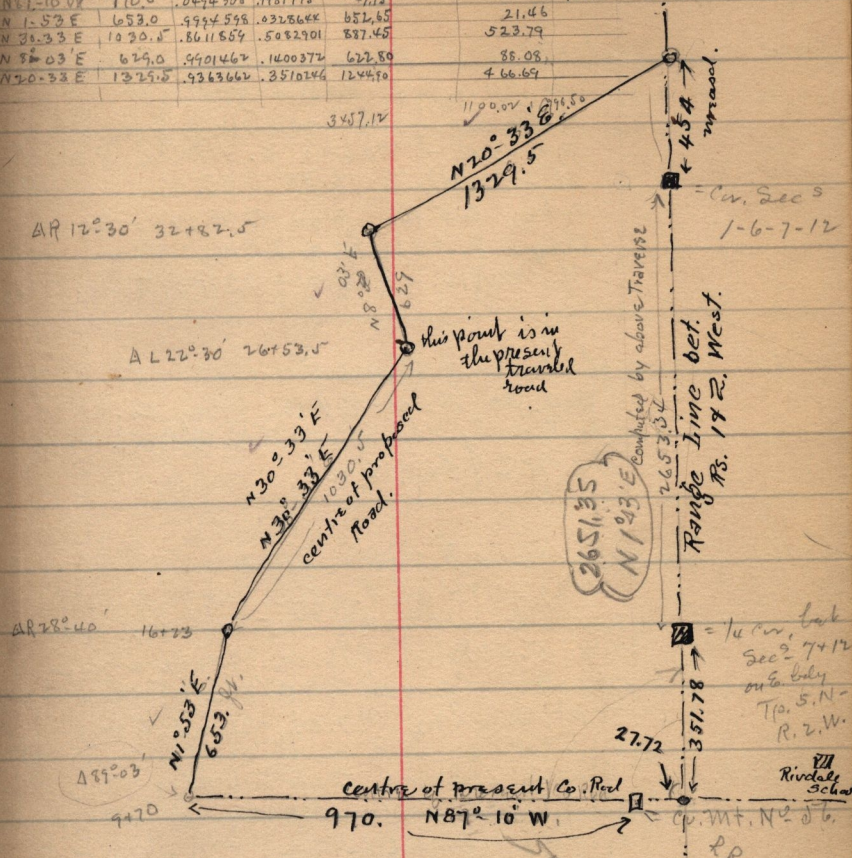 N 1-53 E 653.0 .9994598 .0328644 652.65 21.46
N 30.33 E 1030.5 .8611859 .5082901 887.45 523.79
N 8-03'E 629.0 .9901462 .1400372 622.80 88.08
N20-33 E 1329.5 .9363662 .3510246 1244.90 466.69
3457.12 1100.02
N20°-33'E.
1329.5
454
measd.
= Cor. Secs
1-6-7-12
ΔR 12°-30' 32+82.5
N 8° 03' E
629
this point is in
the present
traveled
road
Δ L 22°-30' 26+53.5
Computed by above Traverse
2653.34
Range Line bet.
Rs. 1 & 2. West.
N 30°-33'E
N 30°-33'E
1030.5
centre of proposed
Road.
2651.35
N 1°43'E
ΔR 28°-40' 16+23
= 1/4 Cor. bet
Secs 7+12
on E. bdy
Tp. 5. N-
R. 2. W.
N1°-53'E
653.
351.78
27.72
Δ89°-03'
9+70
centre of present Co. Rod
970. N87°-10'W.
Rivdale
School